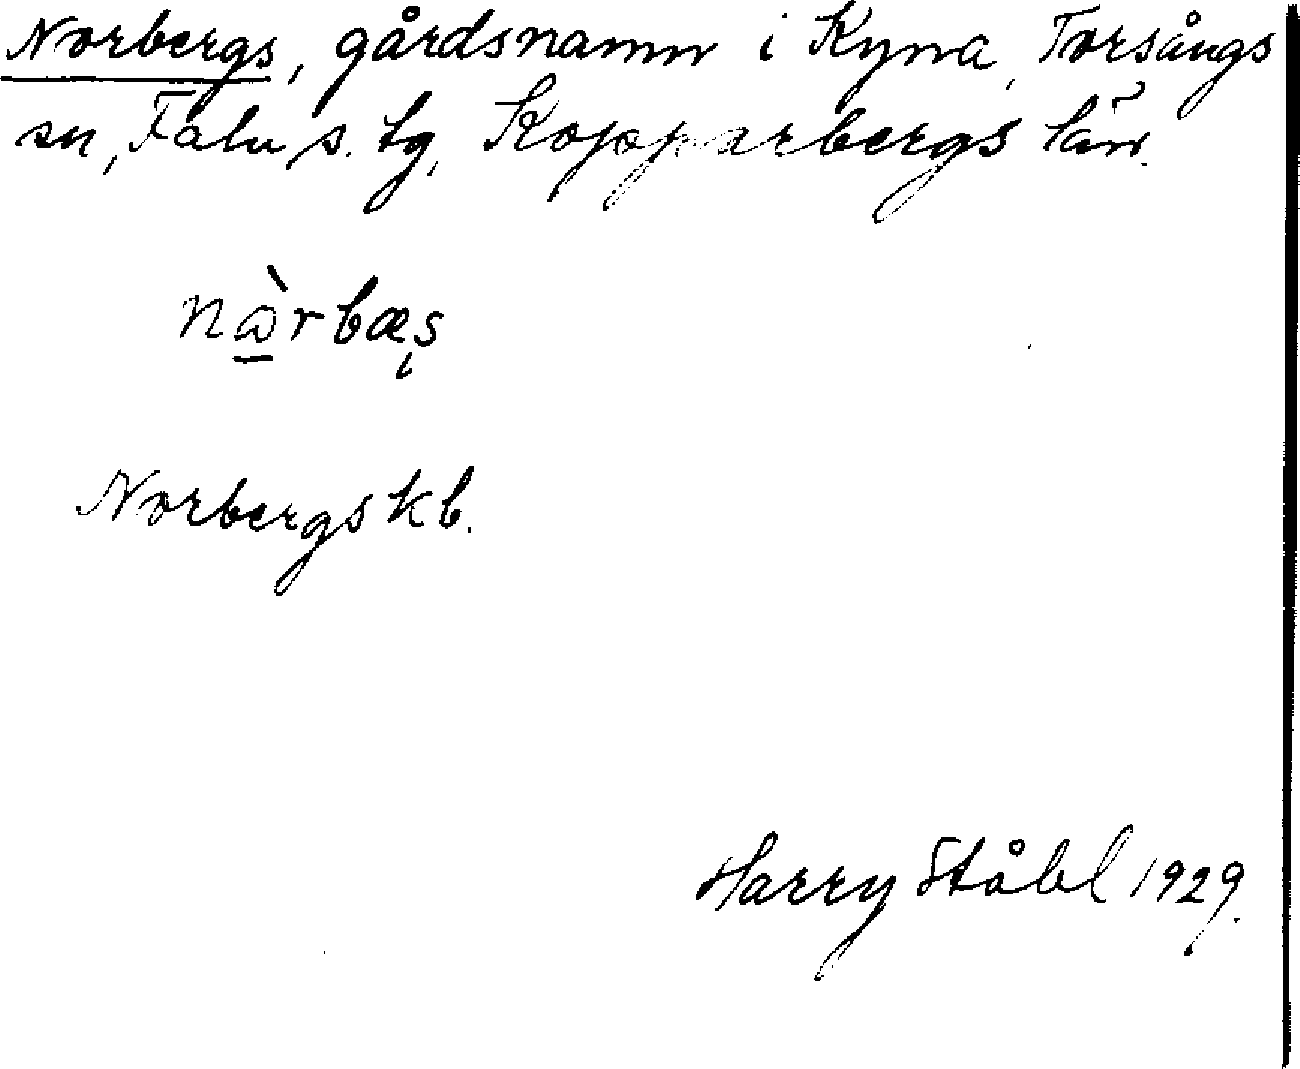 Norbergs, gårdsnamn i Kyna, Torsångs
sn, Falu s. tg, Kopparbergs län.
nàrbæs
Norbergs kb.
Harry Ståhl 1929.